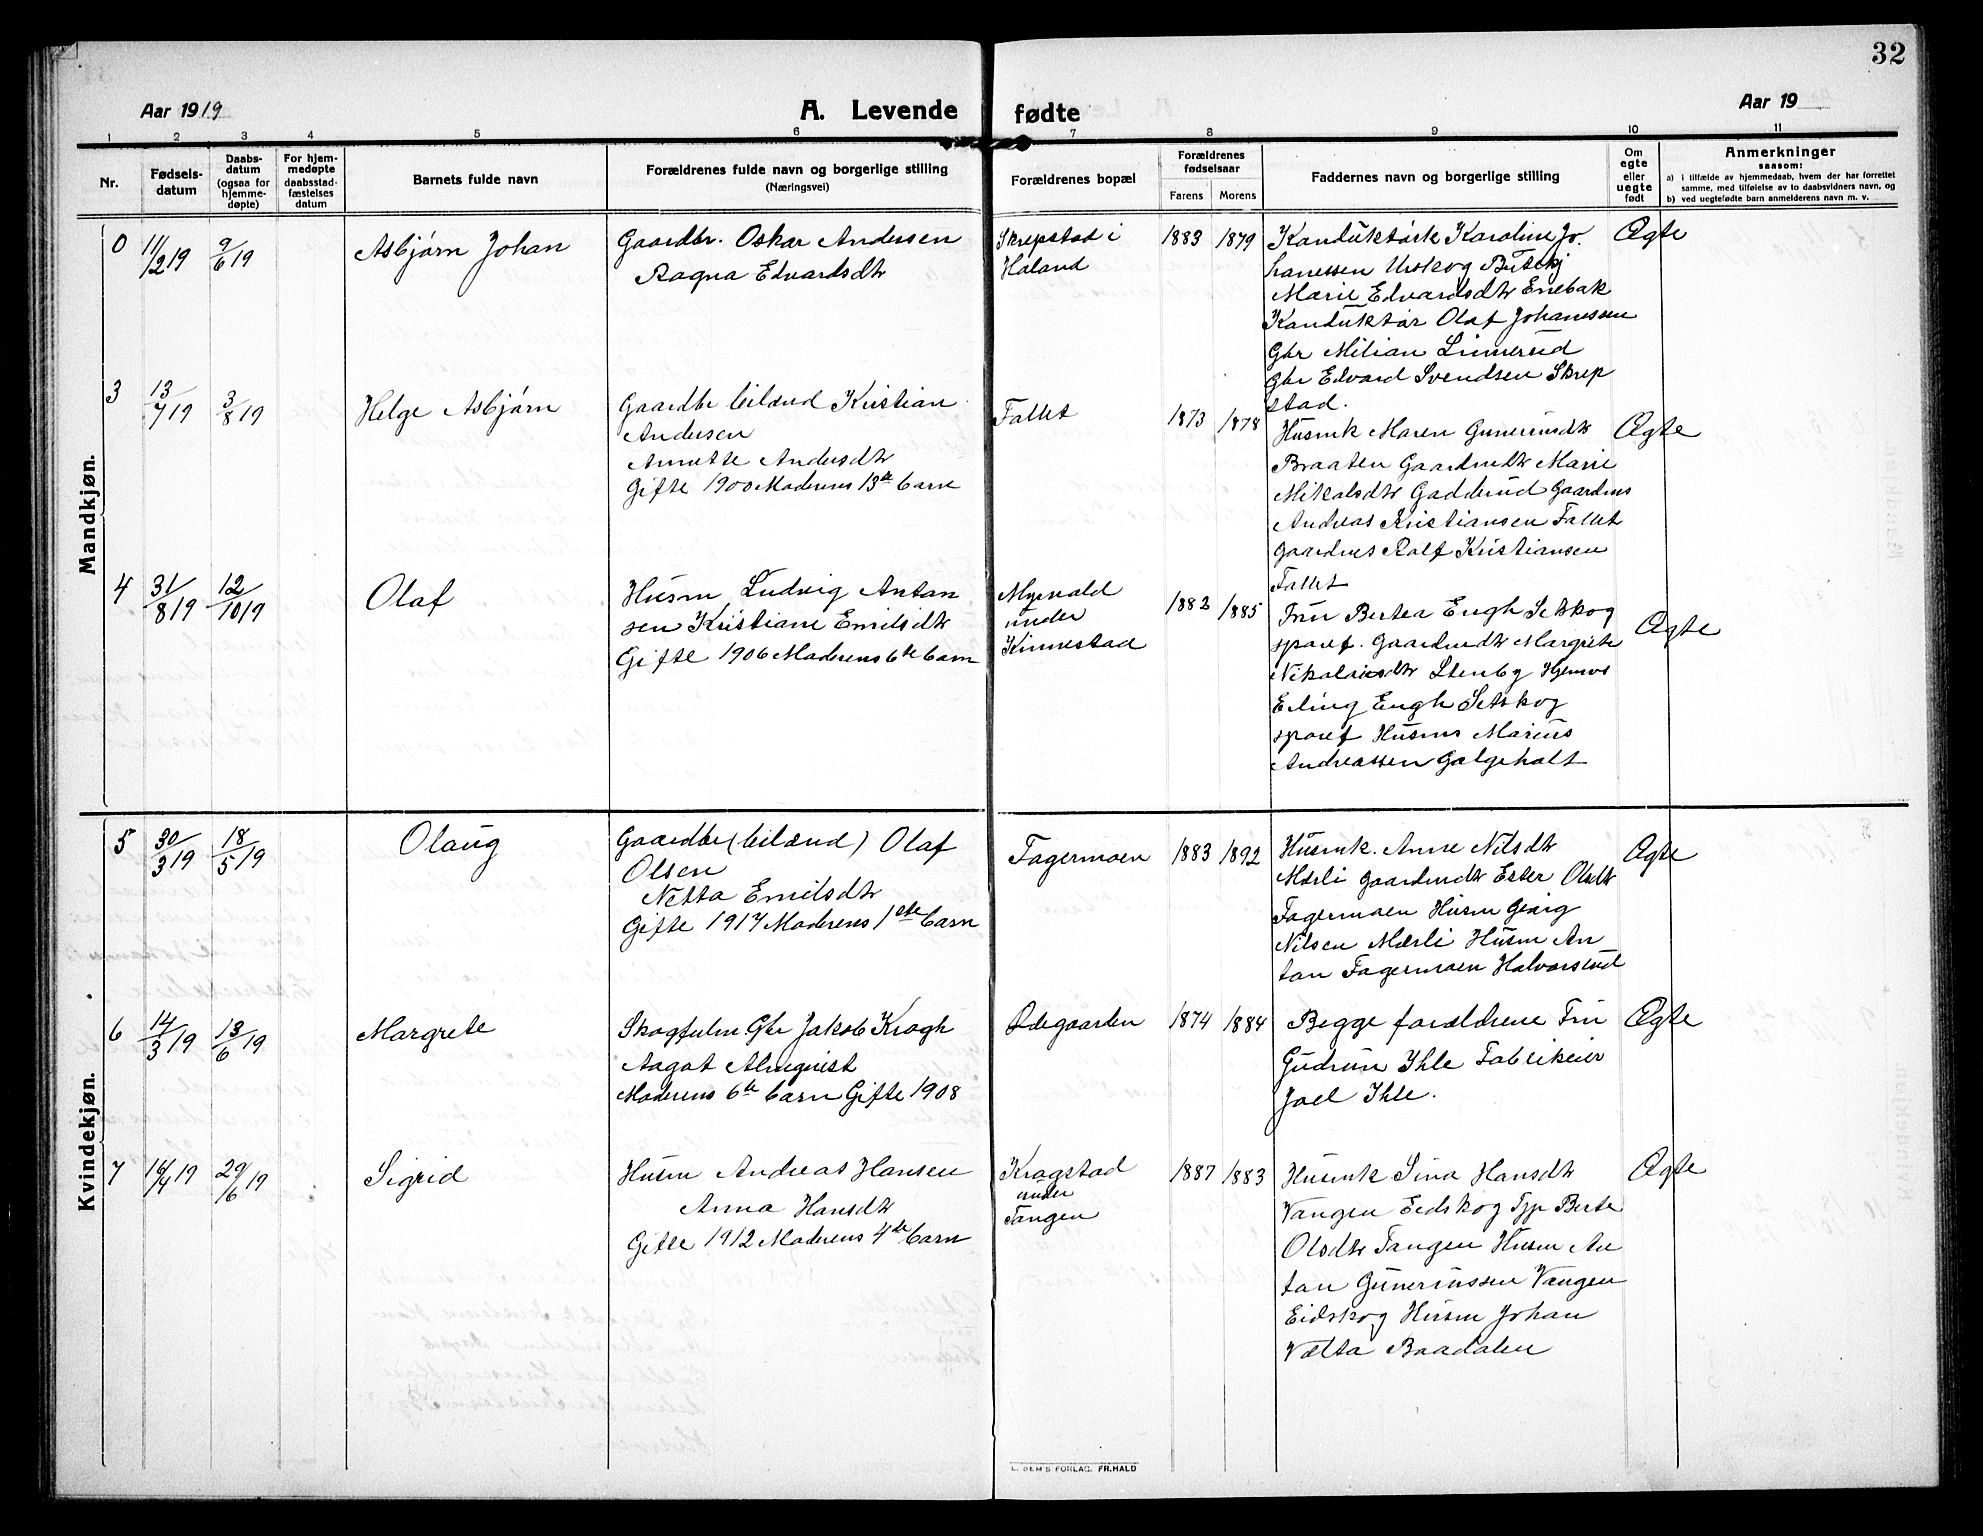 32
Aar 1919
A. Levende
fødte
Aar 19
1 2 3 4 5 6 7 8 9 10 11
Nr.
Fødsels-
datum
Daabs-
datum
(ogsaa for
hjemme-
døpte)
For hjem-
medøpte
daabsstad-
fæstelses
datum
Barnets fulde navn
Forældrenes fulde navn og borgerlige stilling
(Næringsvei)
Forældrenes bopæl
Forældrenes
fødselsaar
Farens Morens
Faddernes navn og borgerlige stilling
Om
egte
eller
uegte
født
Anmerkninger
saasom:
a) i tilfælde av hjemmedaab, hvem der har forrettet
samme, med tilføielse av to daabsvidners navn, og
b) ved uegtefødte barn anmelderens navn m. v.
Mandkjøn.
0 11/2 19 9/6 19
Asbjørn Johan
Gaardbr. Oskar Andersen
Ragna Edvardsdtr
Skrepstad i
Høland
1883 1879
Konduktørk Karoline Jo.
hanessen Urskog
Marie Edvardsdtr Enebak
Konduktør Olaf Johanessen
Gbr Milian Linnerud
Gbr Edvard Svendsen Skrep
stad.
Ægte
3 13/7 19 3/8 19
Helge Asbjørn
Gaardbr leilænd Kristian
Andersen
Annette Andersdtr
Gifte 1900 Moderens 13de barn
Fallet
1873 1878
Husmk Maren Guneriusdtr
Braaten Gaardmdtr Marie
Mikalsdtr Gadderud Gaardms
Andreas Kristiansen Fallet
Gaardms Rolf Kristiansen
Fallet
Ægte
4 31/8 19 12/10 19
Olaf
Husm Ludvig Anton
sen Kristiane Emilsdtr
Gifte 1906 Moderens 6te barn
Myrvold
under
Kinnestad
1882 1885
Fru Bertea Engh Setskog
sparef. Gaardmdtr Margrete
Nikolaisdtr Stenby Hjemvs
Erling Engh Setskog
sparef Husms Marius
Andreassen Galgeholt
Ægte
Kvindekjøn.
5 30/3 19 18/5 19
Olaug
Gaardbr (leilænd) Olaf
Olsen
Netta Emilsdtr
Gifte 1917 Moderens 1ste barn
Fagermoen
1883 1892
Husmk. Anne Nilsdtr
Mærli Gaardmdtr Ester Olsdtr
Fagermoen Husm Georg
Nilsen Mærli Husm An
ton Fagermoen Halvorsrud
Ægte
6 14/3 19 13/6 19
Margrete
Skogfulm. Gbr Jakob Krogh
Aagot Almquist
Moderens 6te barn Gifte 1908
Ødegaarden
1874 1884
Begge forældrene Fru
Gudrun Ihle Fabrikeier
Joel Ihle.
Ægte
7 14/4 19 29/6 19
Sigrid
Husm Andreas Hansen
Anna Hansdtr
Gifte 1912 Moderens 4de barn
Krogstad
under
Tangen
1887 1883
Husmk Sina Hansdtr
Vangen Eidskog Tjp Berte
Olsdtr Tangen Husm An
ton Guneriussen Vangen
Eidskog Husm Johan
Vælta Baadalen
Ægte
E. SEM'S FORLAG, FR.HALD